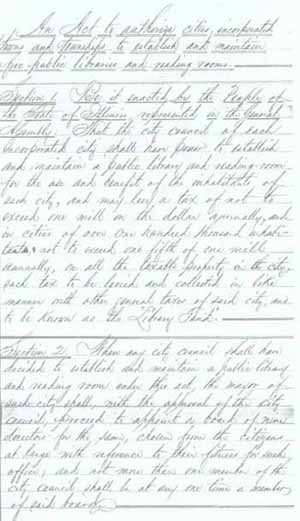 An Act to authorize cities, incorporated
towns and townships to establish and maintain
free public libraries and reading rooms.
Section 1. Be it enacted by the People of
the State of Illinois, represented in the General
Assembly, That the city council of each
incorporated city shall have power to establish
and maintain a public library and reading room
for the use and benefit of the inhabitants of
such city, and may levy a tax of not to
exceed one mill on the dollar annually, and
in cities of over one hundred thousand inhabi-
tants, not to exceed one fifth of one mill
annually, on all the taxable property in the city,
such tax to be levied and collected in like
manner with other general taxes of said city, and
to be known as the "Library Fund."
Section 2. When any city council shall have
decided to establish and maintain a public library
and reading room under this act, the mayor of
such city shall, with the approval of the city
council, proceed to appoint a board of nine
directors for the same, chosen from the citizens
at large with reference to their fitness for such
office; and not more than one member of the
city council shall be at any one time a member
of said board.